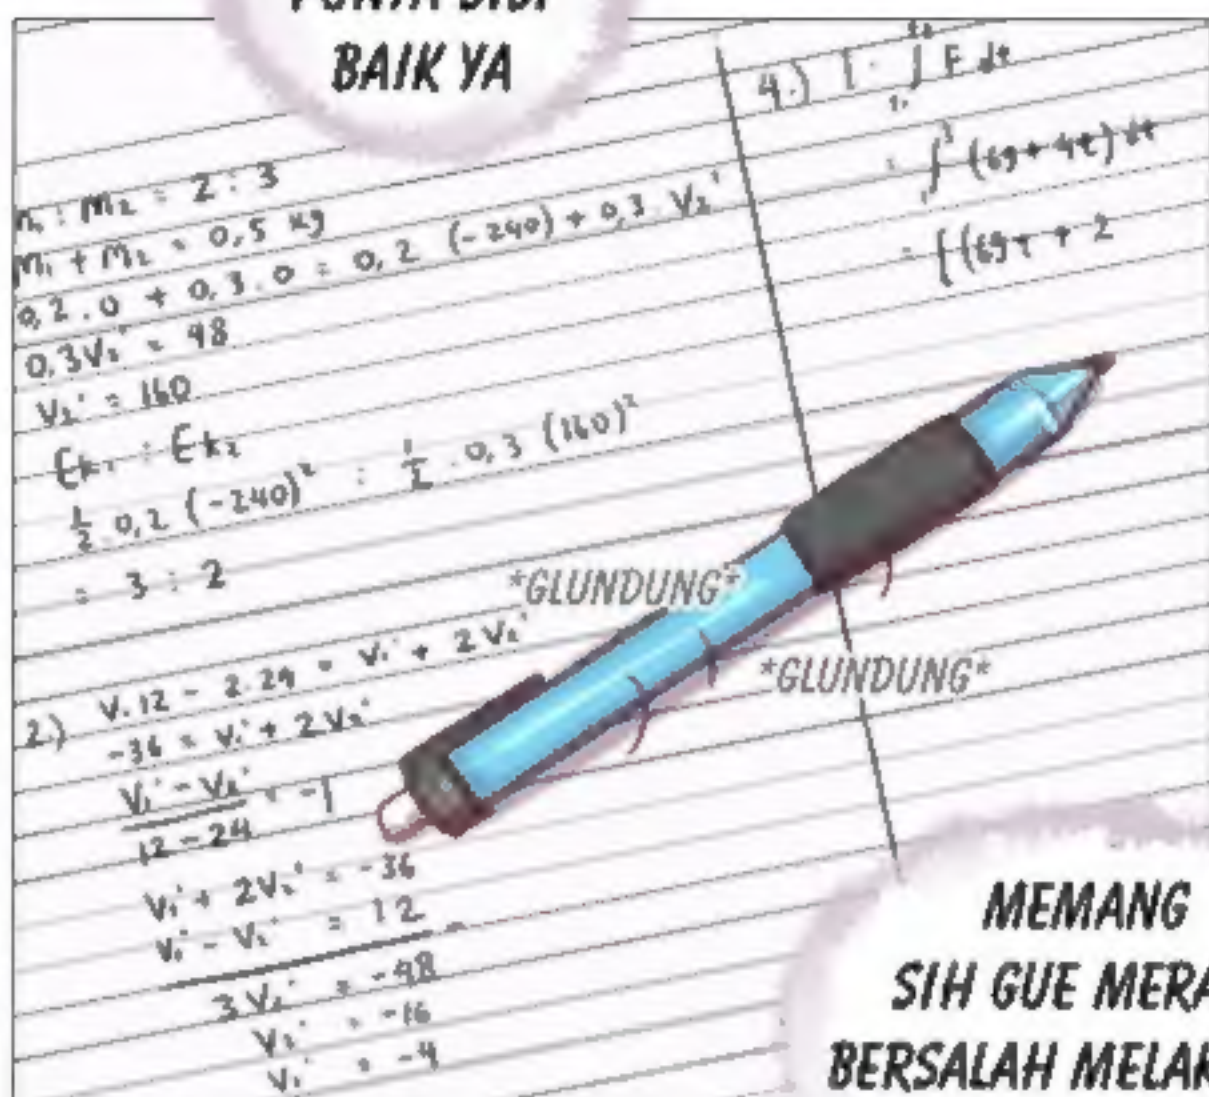 BAIK YA
m₁ : m₂ = 2 : 3
m₁ + m₂ = 0,5 kg
0,2 . 0 + 0,3 . 0 = 0,2 (-240) + 0,3 . V₂'
0,3V₂' = 48
V₂' = 160
Ek₁ : Ek₂
½ . 0,2 (-240)² : ½ . 0,3 (160)²
= 3 : 2
2.) V.12 - 2.24 = V₁' + 2V₂'
-36 = V₁' + 2V₂'
V₁' - V₂'
12 - 24 = -1
V₁' + 2V₂' = -36
V₁' - V₂' = 12
3V₂' = -48
V₂' = -16
V₁' = -4
4.) I = ∫ F dt
= ∫ (69 + 4t) dt
= [(69t + 2
*GLUNDUNG*
*GLUNDUNG*
MEMANG
SIH GUE
BERSALAH